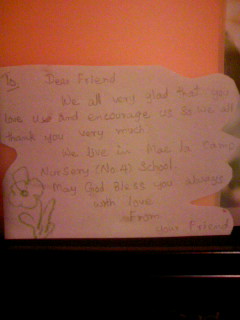 To, Dear Friend
We all very glad that you
love us and encourage us so we all
thank you very much.
We live in Mae La
Nursery (No.4) School.
May God Bless you always
with love
From
your Friend